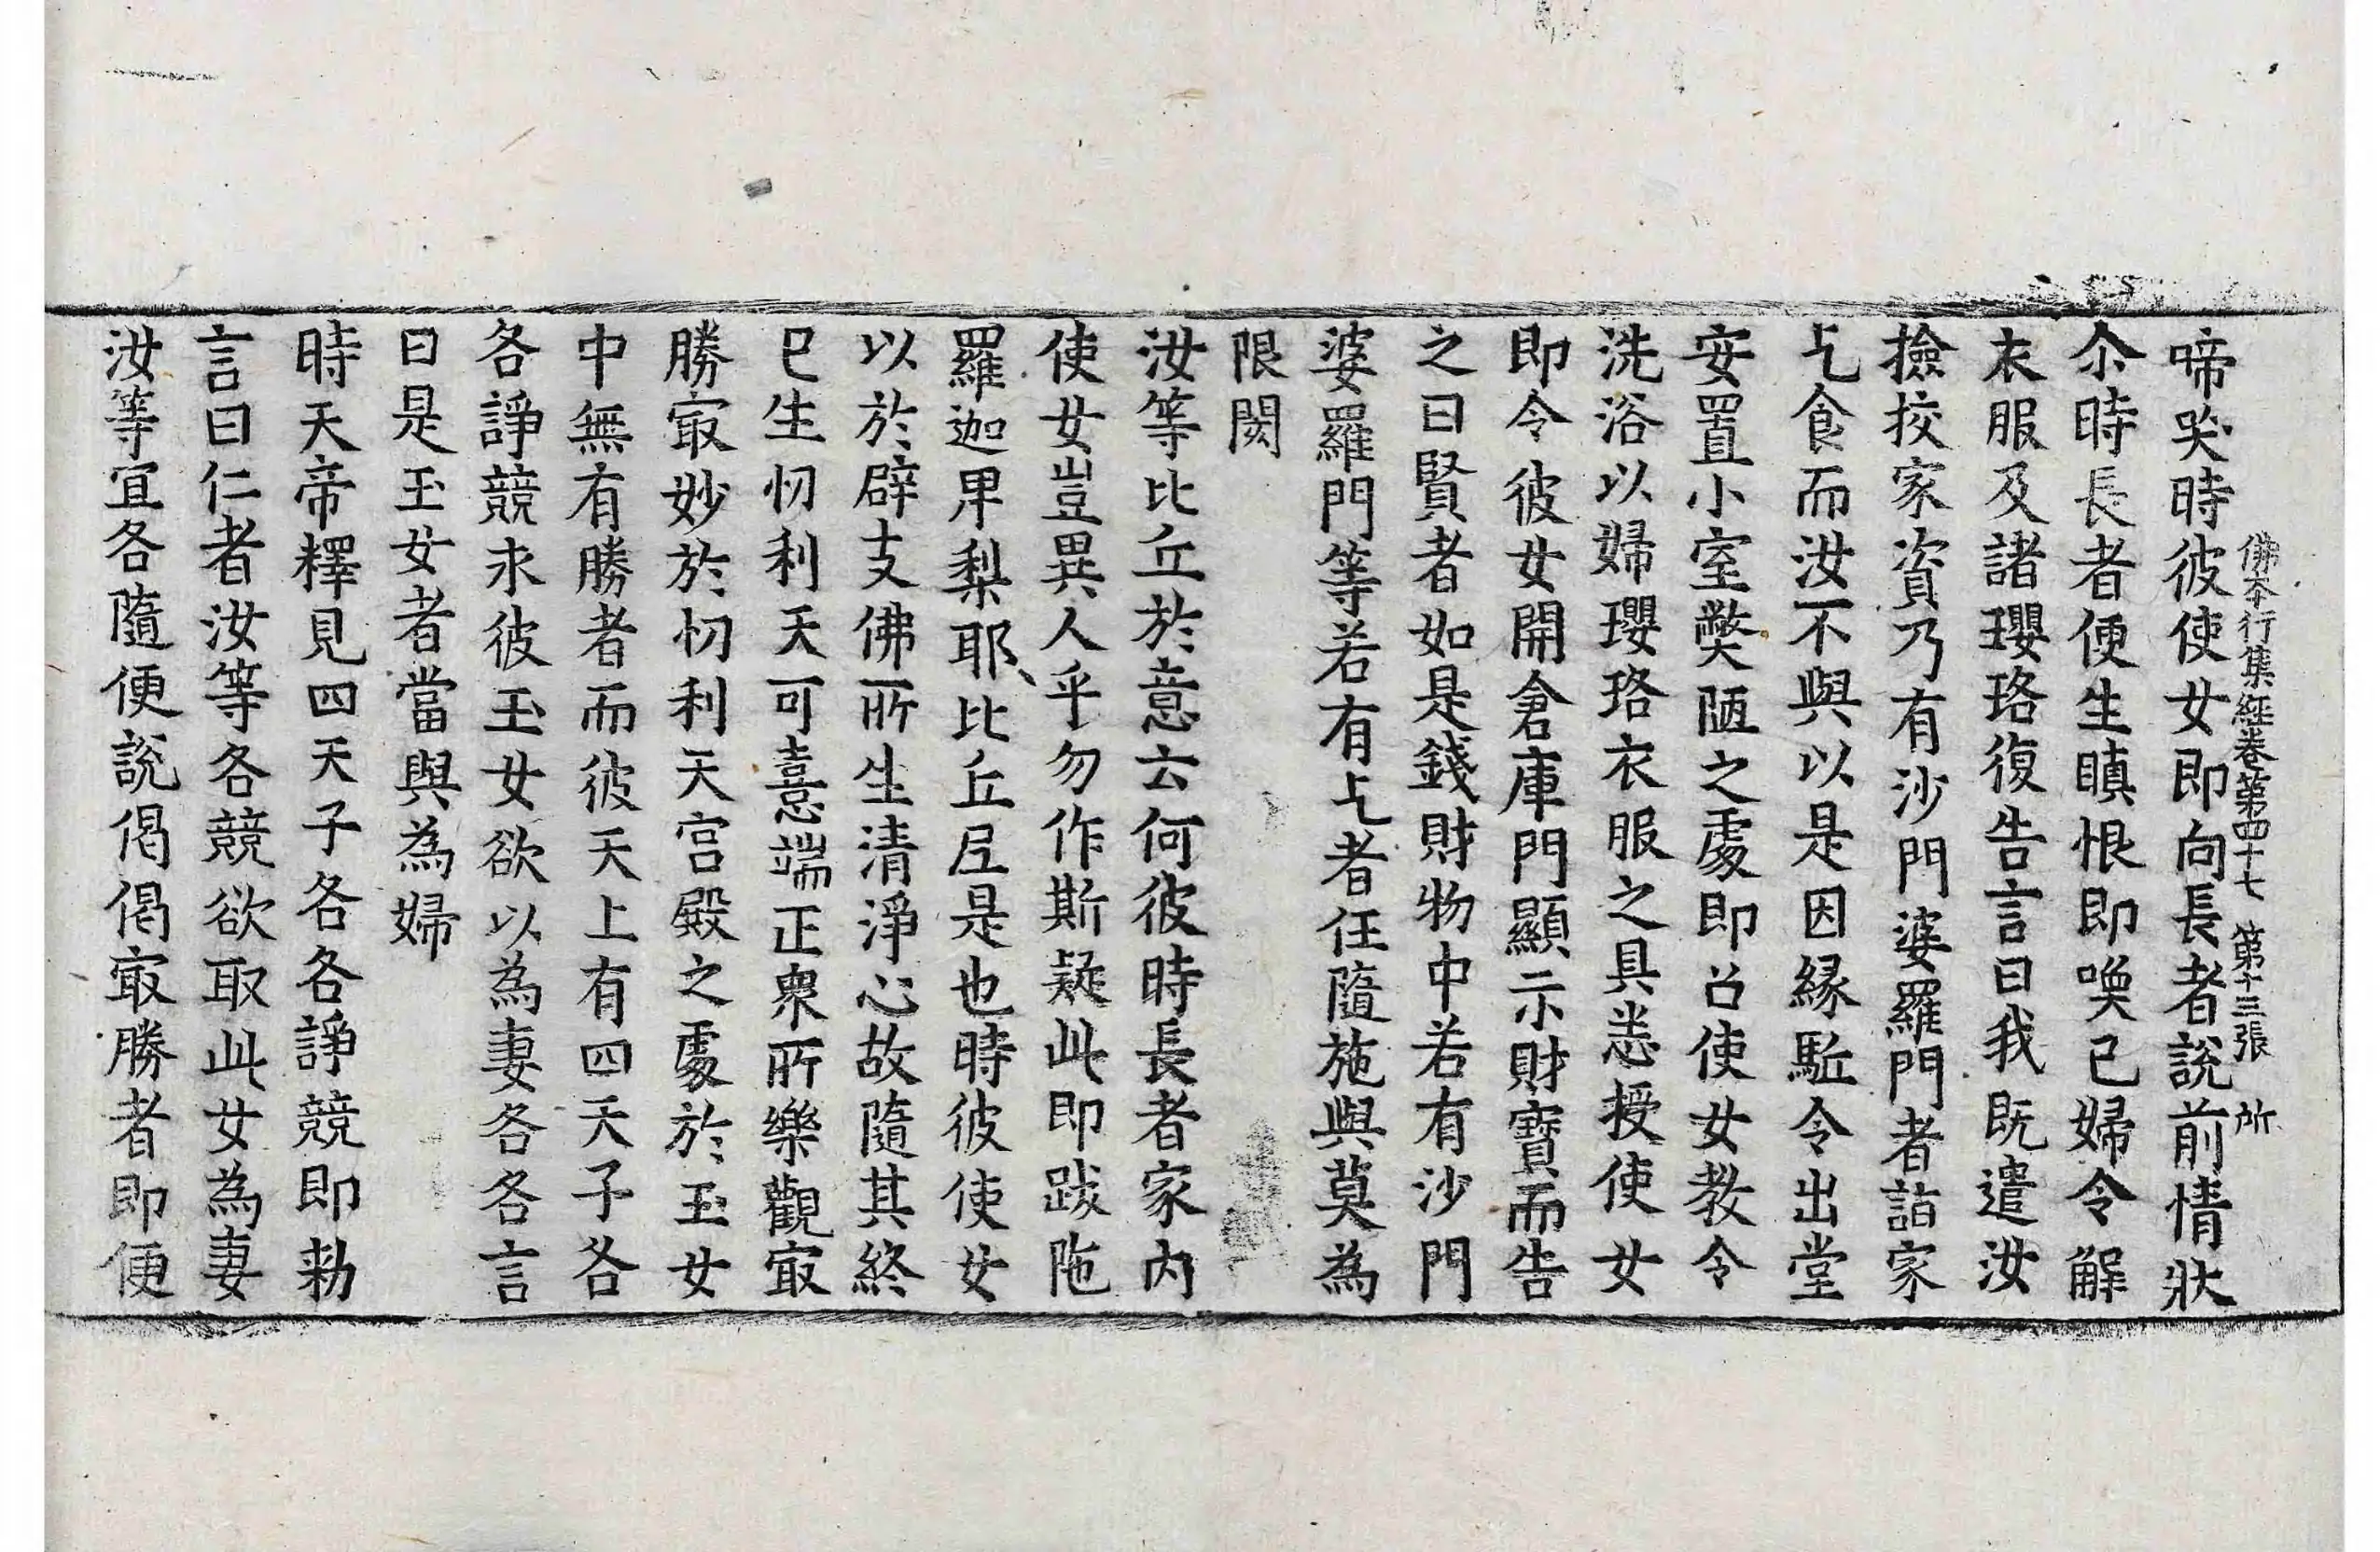 佛本行集經卷第四十七 第十三張 所
啼哭時彼使女即向長者說前情狀
尒時長者便生瞋恨即喚己婦令解
衣服及諸瓔珞復告言曰我既遣汝
撿挍家資乃有沙門婆羅門者詣家
乞食而汝不與以是因緣駈令出堂
安置小室弊陋之處即召使女教令
洗浴以婦瓔珞衣服之具悉授使女
即令彼女開倉庫門顯示財寶而告
之曰賢者如是錢財物中若有沙門
婆羅門等若有乞者任隨施與莫為
限閡
汝等比丘於意云何彼時長者家內
使女豈異人乎勿作斯疑此即跋陁
羅迦卑梨耶比丘尼是也時彼使女
以於辟支佛所生清淨心故隨其終
已生忉利天可憙端正衆所樂觀冣
勝冣妙於忉利天宮殿之處於玉女
中無有勝者而彼天上有四天子各
各諍競求彼玉女欲以為妻各各言
曰是玉女者當與為婦
時天帝釋見四天子各各諍競即勑
言曰仁者汝等各競欲取此女為妻
汝等宜各隨便說偈偈冣勝者即便